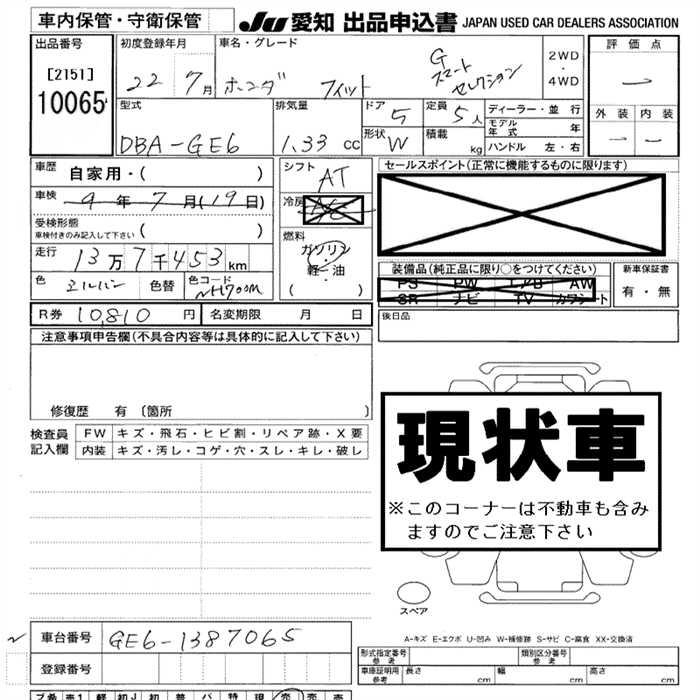 車内保管・守衛保管
JU 愛知 出品申込書 JAPAN USED CAR DEALERS ASSOCIATION
出品番号 [2151] 10065
初度登録年月 22 7月
車名・グレード ホンダ フィット G スマートセレクション
2WD・4WD
評価点 —
外装 — 内装 —
型式 DBA-GE6
排気量 1.33 cc
ドア 5 形状 W
定員 5人 積載 kg
ディーラー・並行
モデル年式 年
ハンドル 左・右
車歴 自家用・( )
車検 4年7月(19日)
受検形態 車検付きのみ記入して下さい ( )
走行 13万7千453km
色 色替 色コード NH700M
シフト AT
冷房 AC
燃料 ガソリン 軽油 ( )
セールスポイント(正常に機能するものに限ります)
装備品(純正品に限り○をつけてください)
PS PW AW
SR ナビ TV カワシート
新車保証書 有・無
R券 10,810円 名変期限 月 日
後日品
注意事項申告欄(不具合内容等は具体的に記入して下さい)
修復歴 有〔箇所 〕
検査員記入欄
FW キズ・飛石・ヒビ割・リペア跡・X要
内装 キズ・汚レ・コゲ・穴・スレ・キレ・破レ
現状車
※このコーナーは不動車も含み
ますのでご注意下さい
スペア
A-キズ E-エクボ U-凹み W-補修跡 S-サビ C-腐食 XX-交換済
車台番号 GE6-1387065
登録番号
形式指定番号 参考
類別区分番号 参考
車庫証明用 参考 長さ cm 幅 cm 高さ cm